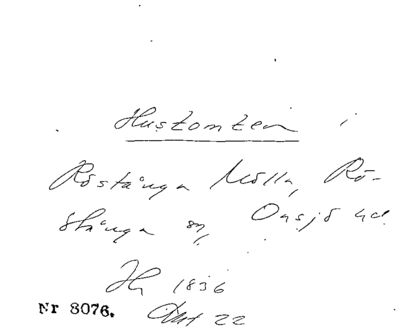 Hustomten i
Röstånga Mölla, Rö-
stånga sn, Onsjö hd.
1836
Nr 8076. 22